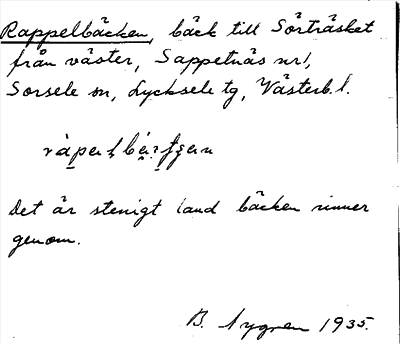 Rappelbäcken, bäck till Sörträsket
från väster, Sappetnäs nr 1,
Sorsele sn, Lycksele tg, Västerb. l.
Det är stenigt land bäcken rinner
genom.
B. Nygren 1935.